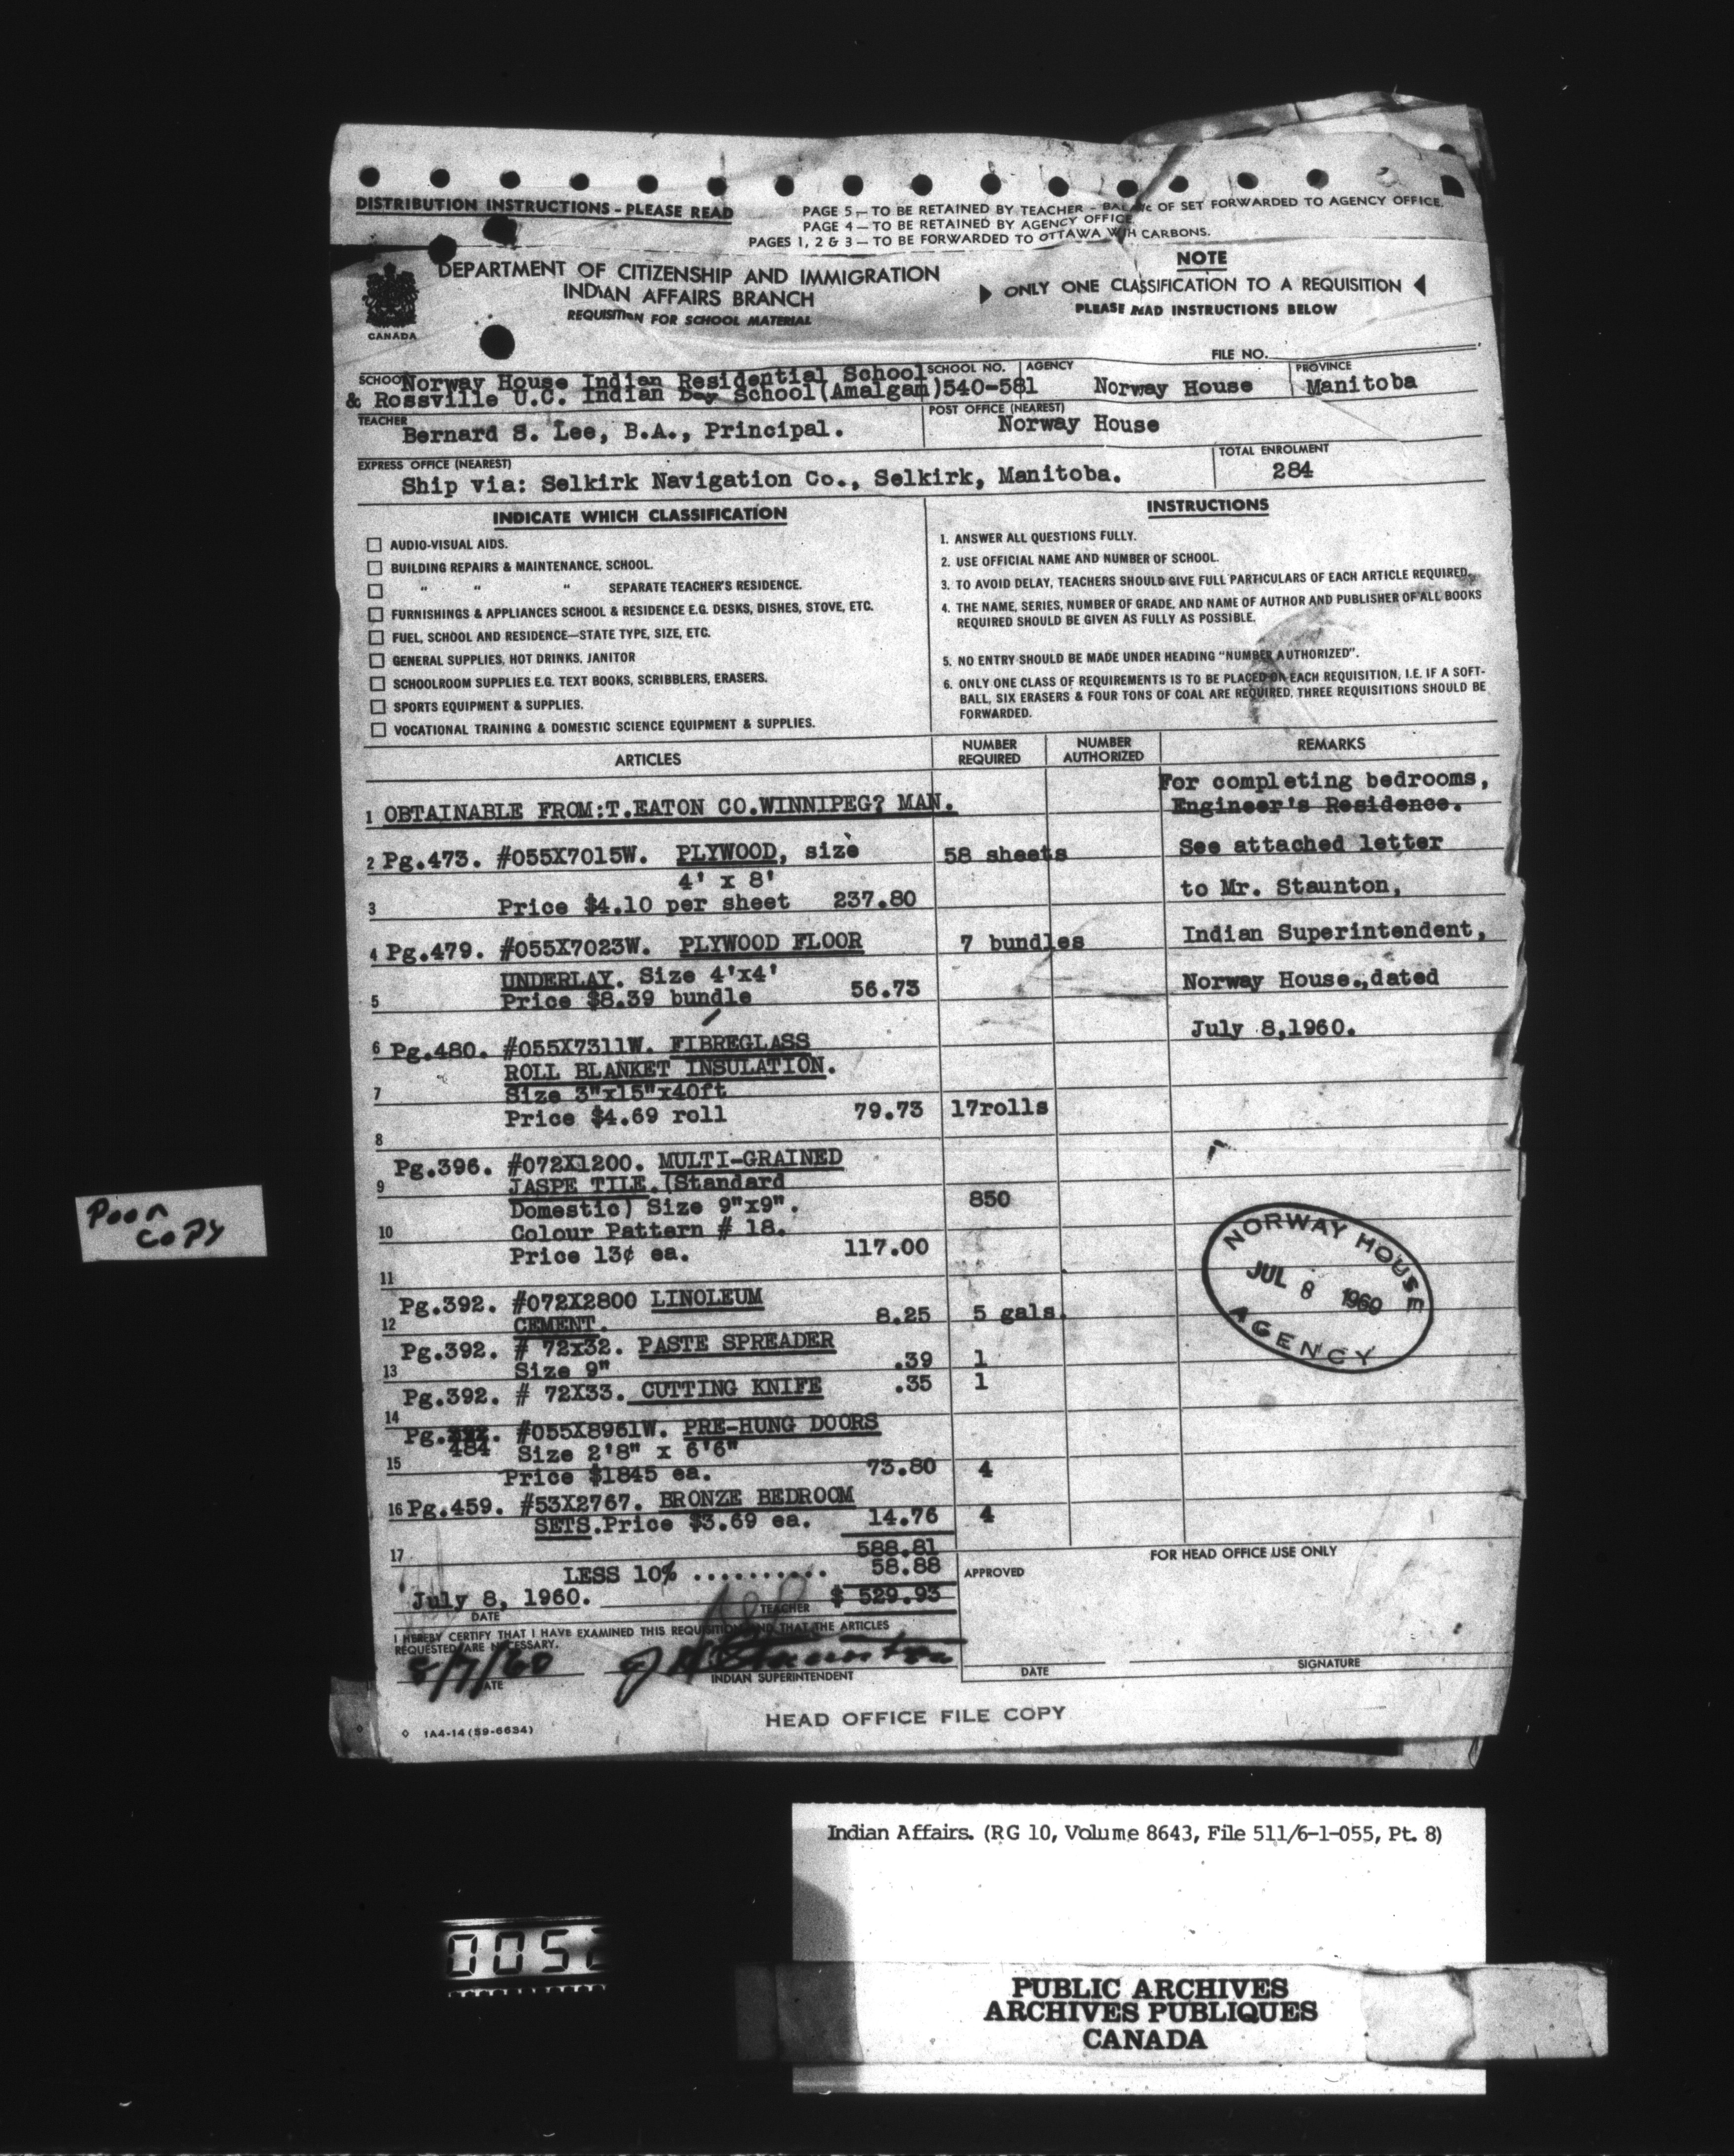 DISTRIBUTION INSTRUCTIONS - PLEASE READ
PAGE 5 — TO BE RETAINED BY TEACHER - OF SET FORWARDED TO AGENCY OFFICE.
PAGE 4 — TO BE RETAINED BY AGENCY OFFICE
PAGES 1, 2 & 3 — TO BE FORWARDED TO OTTAWA CARBONS.
DEPARTMENT OF CITIZENSHIP AND IMMIGRATION
INDIAN AFFAIRS BRANCH
REQUISITION FOR SCHOOL MATERIAL
CANADA
NOTE
ONLY ONE CLASSIFICATION TO A REQUISITION
PLEASE READ INSTRUCTIONS BELOW
FILE NO.
SCHOOL Norway House Indian Residential School
& Rossville U.C. Indian Day School(Amalgam)
SCHOOL NO.
540-581
AGENCY
Norway House
PROVINCE
Manitoba
TEACHER
Bernard S. Lee, B.A., Principal.
POST OFFICE (NEAREST)
Norway House
EXPRESS OFFICE (NEAREST)
Ship via: Selkirk Navigation Co., Selkirk, Manitoba.
TOTAL ENROLMENT
284
INDICATE WHICH CLASSIFICATION
AUDIO-VISUAL AIDS.
BUILDING REPAIRS & MAINTENANCE, SCHOOL.
" " " SEPARATE TEACHER'S RESIDENCE.
FURNISHINGS & APPLIANCES SCHOOL & RESIDENCE E.G. DESKS, DISHES, STOVE, ETC.
FUEL, SCHOOL AND RESIDENCE—STATE TYPE, SIZE, ETC.
GENERAL SUPPLIES, HOT DRINKS, JANITOR
SCHOOLROOM SUPPLIES E.G. TEXT BOOKS, SCRIBBLERS, ERASERS.
SPORTS EQUIPMENT & SUPPLIES.
VOCATIONAL TRAINING & DOMESTIC SCIENCE EQUIPMENT & SUPPLIES.
INSTRUCTIONS
1. ANSWER ALL QUESTIONS FULLY.
2. USE OFFICIAL NAME AND NUMBER OF SCHOOL.
3. TO AVOID DELAY, TEACHERS SHOULD GIVE FULL PARTICULARS OF EACH ARTICLE REQUIRED.
4. THE NAME, SERIES, NUMBER OF GRADE, AND NAME OF AUTHOR AND PUBLISHER OF ALL BOOKS
REQUIRED SHOULD BE GIVEN AS FULLY AS POSSIBLE.
5. NO ENTRY SHOULD BE MADE UNDER HEADING "NUMBER AUTHORIZED".
6. ONLY ONE CLASS OF REQUIREMENTS IS TO BE PLACED ON EACH REQUISITION, I.E. IF A SOFT-
BALL, SIX ERASERS & FOUR TONS OF COAL ARE REQUIRED, THREE REQUISITIONS SHOULD BE
FORWARDED.
ARTICLES
NUMBER REQUIRED
NUMBER AUTHORIZED
REMARKS
1 OBTAINABLE FROM:T.EATON CO.WINNIPEG? MAN.
2 Pg.473. #055X7015W. PLYWOOD, size 58 sheets
4' x 8'
3 Price $4.10 per sheet 237.80
4 Pg.479. #055X7023W. PLYWOOD FLOOR 7 bundles
UNDERLAY. Size 4'x4'
5 Price $8.39 bundle 56.73
6 Pg.480. #055X7311W. FIBREGLASS
ROLL BLANKET INSULATION.
7 Size 3"x15"x40ft
Price $4.69 roll 79.73 17rolls
8
Pg.396. #072X1200. MULTI-GRAINED
9 JASPE TILE.(Standard
Domestic) Size 9"x9". 850
10 Colour Pattern # 18.
Price 13¢ ea. 117.00
11
Pg.392. #072X2800 LINOLEUM
12 CEMENT. 8.25 5 gals.
Pg.392. # 72x32. PASTE SPREADER
13 Size 9" .39 1
Pg.392. # 72X33. CUTTING KNIFE .35 1
14
Pg. #055X8961W. PRE-HUNG DOORS
484 Size 2'8" x 6'6"
15 Price $1845 ea. 73.80 4
16 Pg.459. #53X2767. BRONZE BEDROOM
SETS.Price $3.69 ea. 14.76 4
17 588.81
LESS 10% .......... 58.88
$ 529.93
For completing bedrooms,
Engineer's Residence.
See attached letter
to Mr. Staunton,
Indian Superintendent,
Norway House.,dated
July 8,1960.
NORWAY HOUSE
JUL 8 1960
AGENCY
July 8, 1960.
DATE
TEACHER
I HEREBY CERTIFY THAT I HAVE EXAMINED THIS REQUISITION AND THAT THE ARTICLES
REQUESTED ARE NECESSARY.
8/7/60
DATE
J H Staunton
INDIAN SUPERINTENDENT
FOR HEAD OFFICE USE ONLY
APPROVED
DATE
SIGNATURE
HEAD OFFICE FILE COPY
1A4-14(59-6634)
Poor
copy
Indian Affairs. (RG 10, Volume 8643, File 511/6-1-055, Pt. 8)
PUBLIC ARCHIVES
ARCHIVES PUBLIQUES
CANADA